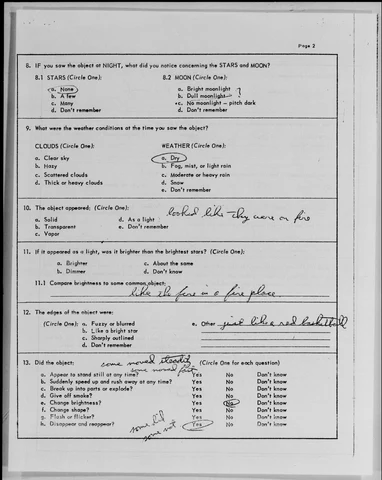 Page 2
8. IF you saw the object at NIGHT, what did you notice concerning the STARS and MOON?
8.1 STARS (Circle One): 8.2 MOON (Circle One):
a. None a. Bright moonlight
b. A few b. Dull moonlight ?
c. Many c. No moonlight – pitch dark
d. Don't remember d. Don't remember
9. What were the weather conditions at the time you saw the object?
CLOUDS (Circle One): WEATHER (Circle One):
a. Clear sky a. Dry
b. Hazy b. Fog, mist, or light rain
c. Scattered clouds c. Moderate or heavy rain
d. Thick or heavy clouds d. Snow
e. Don't remember
10. The object appeared: (Circle One): looked like they were on fire
a. Solid d. As a light
b. Transparent e. Don't remember
c. Vapor
11. If it appeared as a light, was it brighter than the brightest stars? (Circle One):
a. Brighter c. About the same
b. Dimmer d. Don't know
11.1 Compare brightness to some common object:
like the fire in a fire place.
12. The edges of the object were:
(Circle One): a. Fuzzy or blurred e. Other just like a red basketball
b. Like a bright star
c. Sharply outlined
d. Don't remember
13. Did the object: some moved steady (Circle One for each question)
some moved fast
a. Appear to stand still at any time? Yes No Don't know
b. Suddenly speed up and rush away at any time? Yes No Don't know
c. Break up into parts or explode? Yes No Don't know
d. Give off smoke? Yes No Don't know
e. Change brightness? Yes No Don't know
f. Change shape? Yes No Don't know
g. Flash or flicker? Yes No Don't know
h. Disappear and reappear? some did some not Yes No Don't know